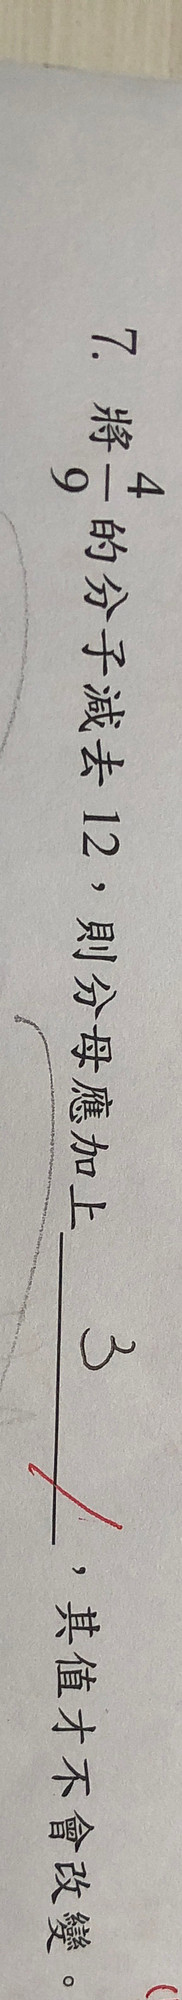 7. 將4/9的分子減去12，則分母應加上 3 ，其值才不會改變。